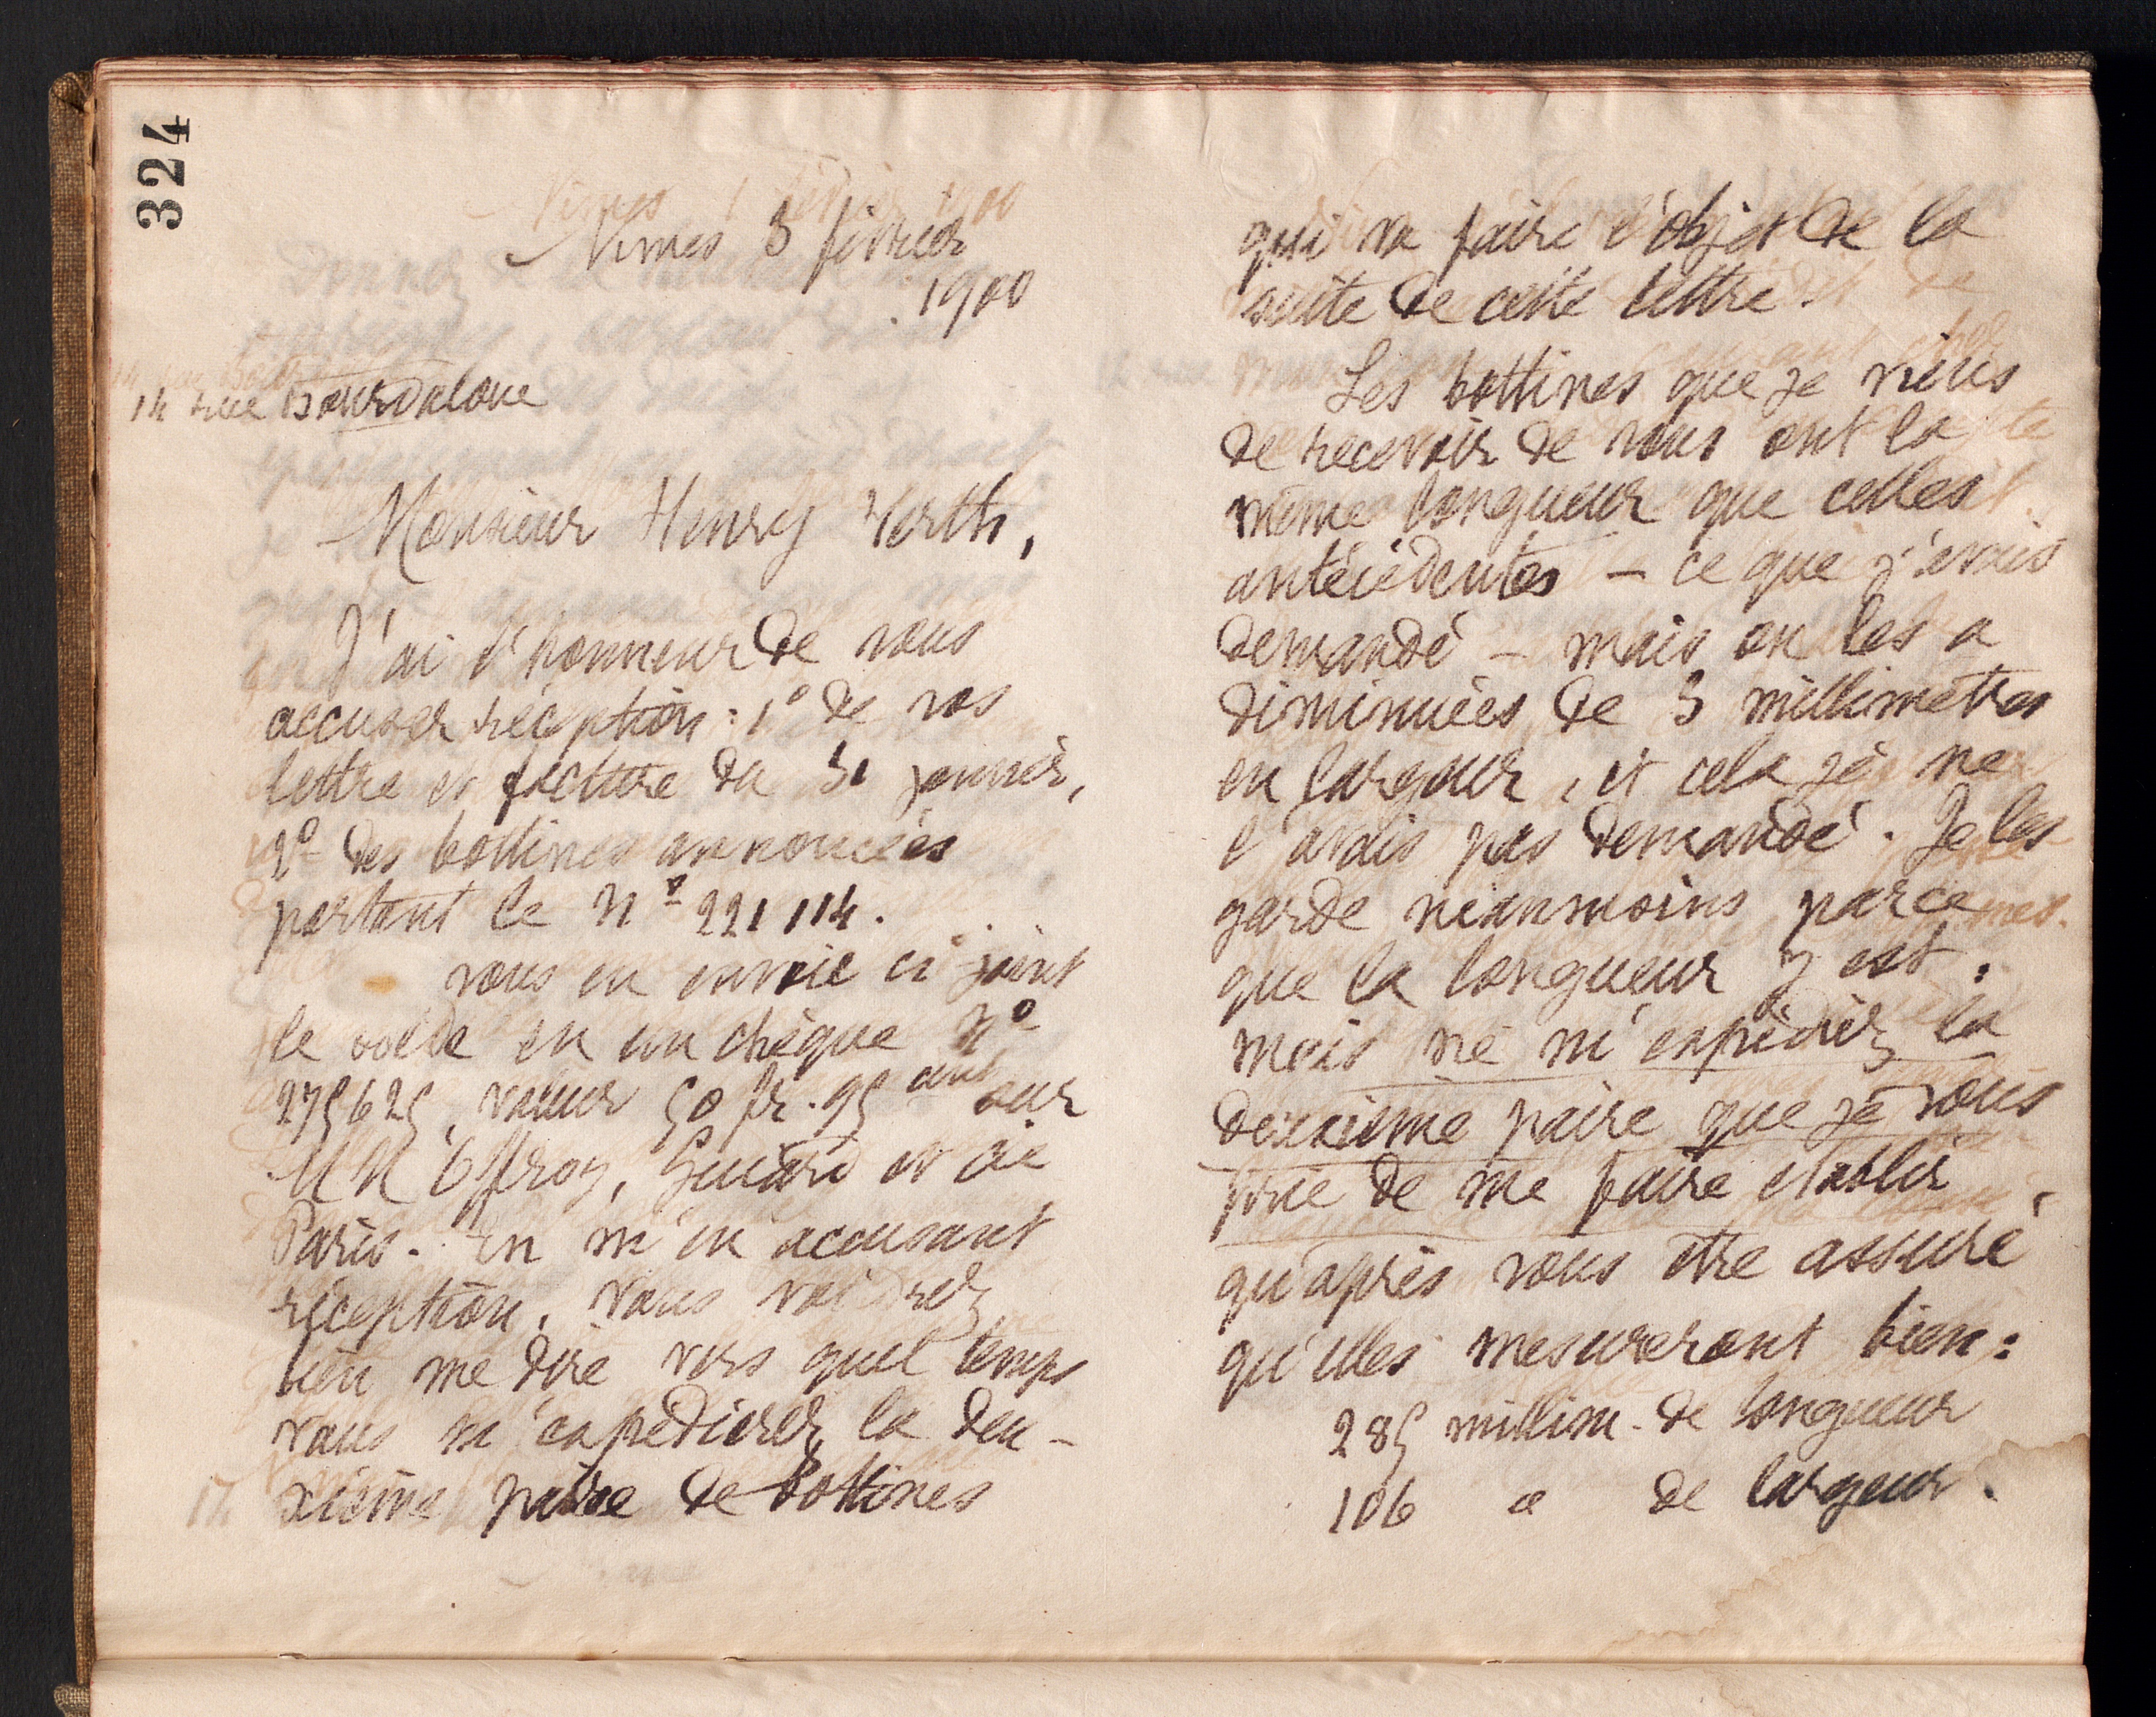 324
Nimes 3 février
1900
14 rue Bourdaloue
Monsieur Henry Yerth,
J'ai l'honneur de vous
accuser réception : 1° de vos
lettre et facture du 31 janvier,
2° des bottines annoncées
portant le N° 221114.
vous en envoie ci joint
le solde en un chèque N°
275625, valeur 50 fr. 95 cent sur
MM Offroy, Guiard et Cie
Paris. En m'en accusant
réception, vous voudrez
bien me dire vers quel temps
vous m'expédierez la deu-
xième paire de bottines
qui va faire l'objet de la
suite de cette lettre.
Les bottines que je viens
de recevoir de vous ont la
même longueur que celles
antécédentes – ce que j'avais
demandé – mais on les a
diminuées de 3 millimètres
en largeur, et cela je ne
l'avais pas demandé. Je les
garde néanmoins parce
que la longueur y est ;
mais ne m'expédiez la
deuxième paire que je vous
prie de me faire établir,
qu'après vous être assuré
qu'elles mesureront bien :
285 millim. de longueur
106 de largeur.